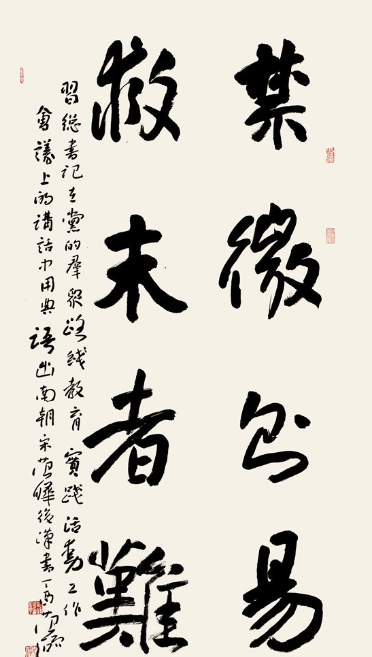 禁微則易
救末者難
習總書記在黨的羣衆路线教育實踐活動工作
會議上的講話中用典語出南朝宋范曄後漢書丁酉